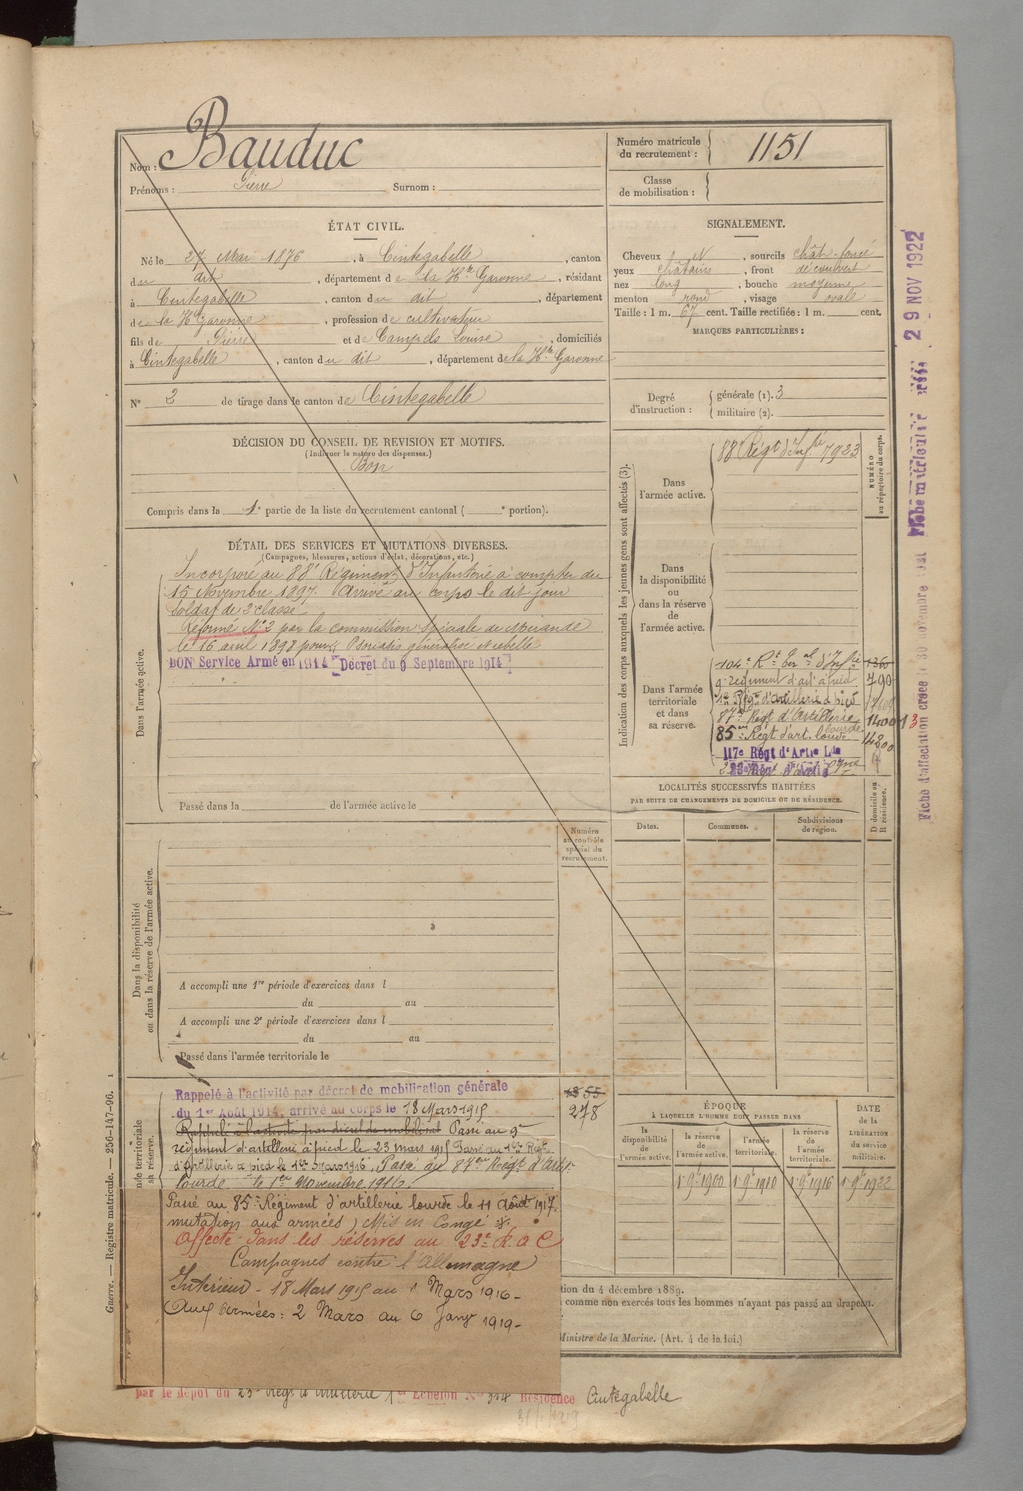 Nom : Bauduc
Prénoms : Pierre Surnom :
Numéro matricule du recrutement : 1151
Classe de mobilisation :
ÉTAT CIVIL.
Né le 27 Mai 1876, à Cintegabelle, canton
du dit, département de la Hte Garonne, résidant
à Cintegabelle, canton du dit, département
de la Hte Garonne, profession de cultivateur
fils de Pierre et de Campels Louise, domiciliés
à Cintegabelle, canton du dit, département de la Hte Garonne
N° 2 de tirage dans le canton de Cintegabelle
SIGNALEMENT.
Cheveux N, sourcils chât. foncé
yeux châtains, front découvert
nez long, bouche moyenne
menton rond, visage ovale
Taille : 1 m. 67 cent. Taille rectifiée : 1 m. cent.
MARQUES PARTICULIÈRES :
Degré d'instruction : générale (1). 3
militaire (2).
DÉCISION DU CONSEIL DE REVISION ET MOTIFS.
(Indiquer la nature des dispenses.)
Bon
Compris dans la 1e partie de la liste du recrutement cantonal ( e portion).
DÉTAIL DES SERVICES ET MUTATIONS DIVERSES.
(Campagnes, blessures, actions d'éclat, décorations, etc.)
Dans l'armée active.
Incorporé au 88e Régiment d'Infanterie à compter du
15 Novembre 1897. Arrivé au corps le dit jour
Soldat de 2e classe
Réformé N°2 par la commission Spéciale de Mirande
le 16 avril 1898 pour Psoriasis généralisé et rebelle
BON Service Armé en 1914 [Décret du 9 Septembre 1914]
Passé dans la de l'armée active le
Indication des corps auxquels les jeunes gens sont affectés (3).
NUMÉRO au répertoire du corps.
Dans l'armée active.
88e Régt d'Infrie 7923
Dans la disponibilité ou dans la réserve de l'armée active.
Dans l'armée territoriale et dans sa réserve.
104e Rt Ter al d'Infie 1265
9e régiment d'art à pied 790
1er Régt d'artillerie à pied
87e Régt d'Artillerie lourde
85e Régt d'art. lourde 14800
117e Régt d'Artie Lde
LOCALITÉS SUCCESSIVES HABITÉES
PAR SUITE DE CHANGEMENTS DE DOMICILE OU DE RÉSIDENCE.
Dates. Communes. Subdivisions de région. D domicile ou R résidence.
Numéro au contrôle spécial du recrutement.
Dans la disponibilité ou dans la réserve de l'armée active.
A accompli une 1re période d'exercices dans l
du au
A accompli une 2e période d'exercices dans l
du au
Passé dans l'armée territoriale le
Rappelé à l'activité par décret de mobilisation générale
du 1er Août 1914, arrivé au corps le 18 Mars 1915
1355
278
Rappelé à l'activité par décret de mobilisat Passé au 9e
régiment d'artillerie à pied le 23 mars 1915 Passé au 1er Régt
d'Artillerie à pied le 1er mars 1916. Passé au 87e Régt d'Artil.
lourde le 1er Novembre 1916.
Passé au 85e Régiment d'artillerie lourde le 11 août 1917.
mutation aux armées) Mis en Congé
Affecté dans les réserves au 23e R.A.C
Campagnes contre l'Allemagne
Intérieur - 18 Mars 1915 au 1 Mars 1916 -
Aux Armées : 2 Mars au 6 Janv 1919 -
ÉPOQUE
À LAQUELLE L'HOMME DOIT PASSER DANS
la disponibilité de l'armée active. la réserve de l'armée active. l'armée territoriale. la réserve de l'armée territoriale.
DATE de la LIBÉRATION du service militaire.
1er 9bre 1900 1er 9bre 1910 1er 9bre 1916 1er 9bre 1922
tion du 4 décembre 1889.
comme non exercés tous les hommes n'ayant pas passé au drapeau.
Ministre de la Marine. (Art. 4 de la loi.)
par le dépôt du 23e Régt d'Artillerie 1er Echelon N° 314 Résidence Cintegabelle
Guerre. — Registre matricule. — 256-147-96. 1
29 NOV 1922